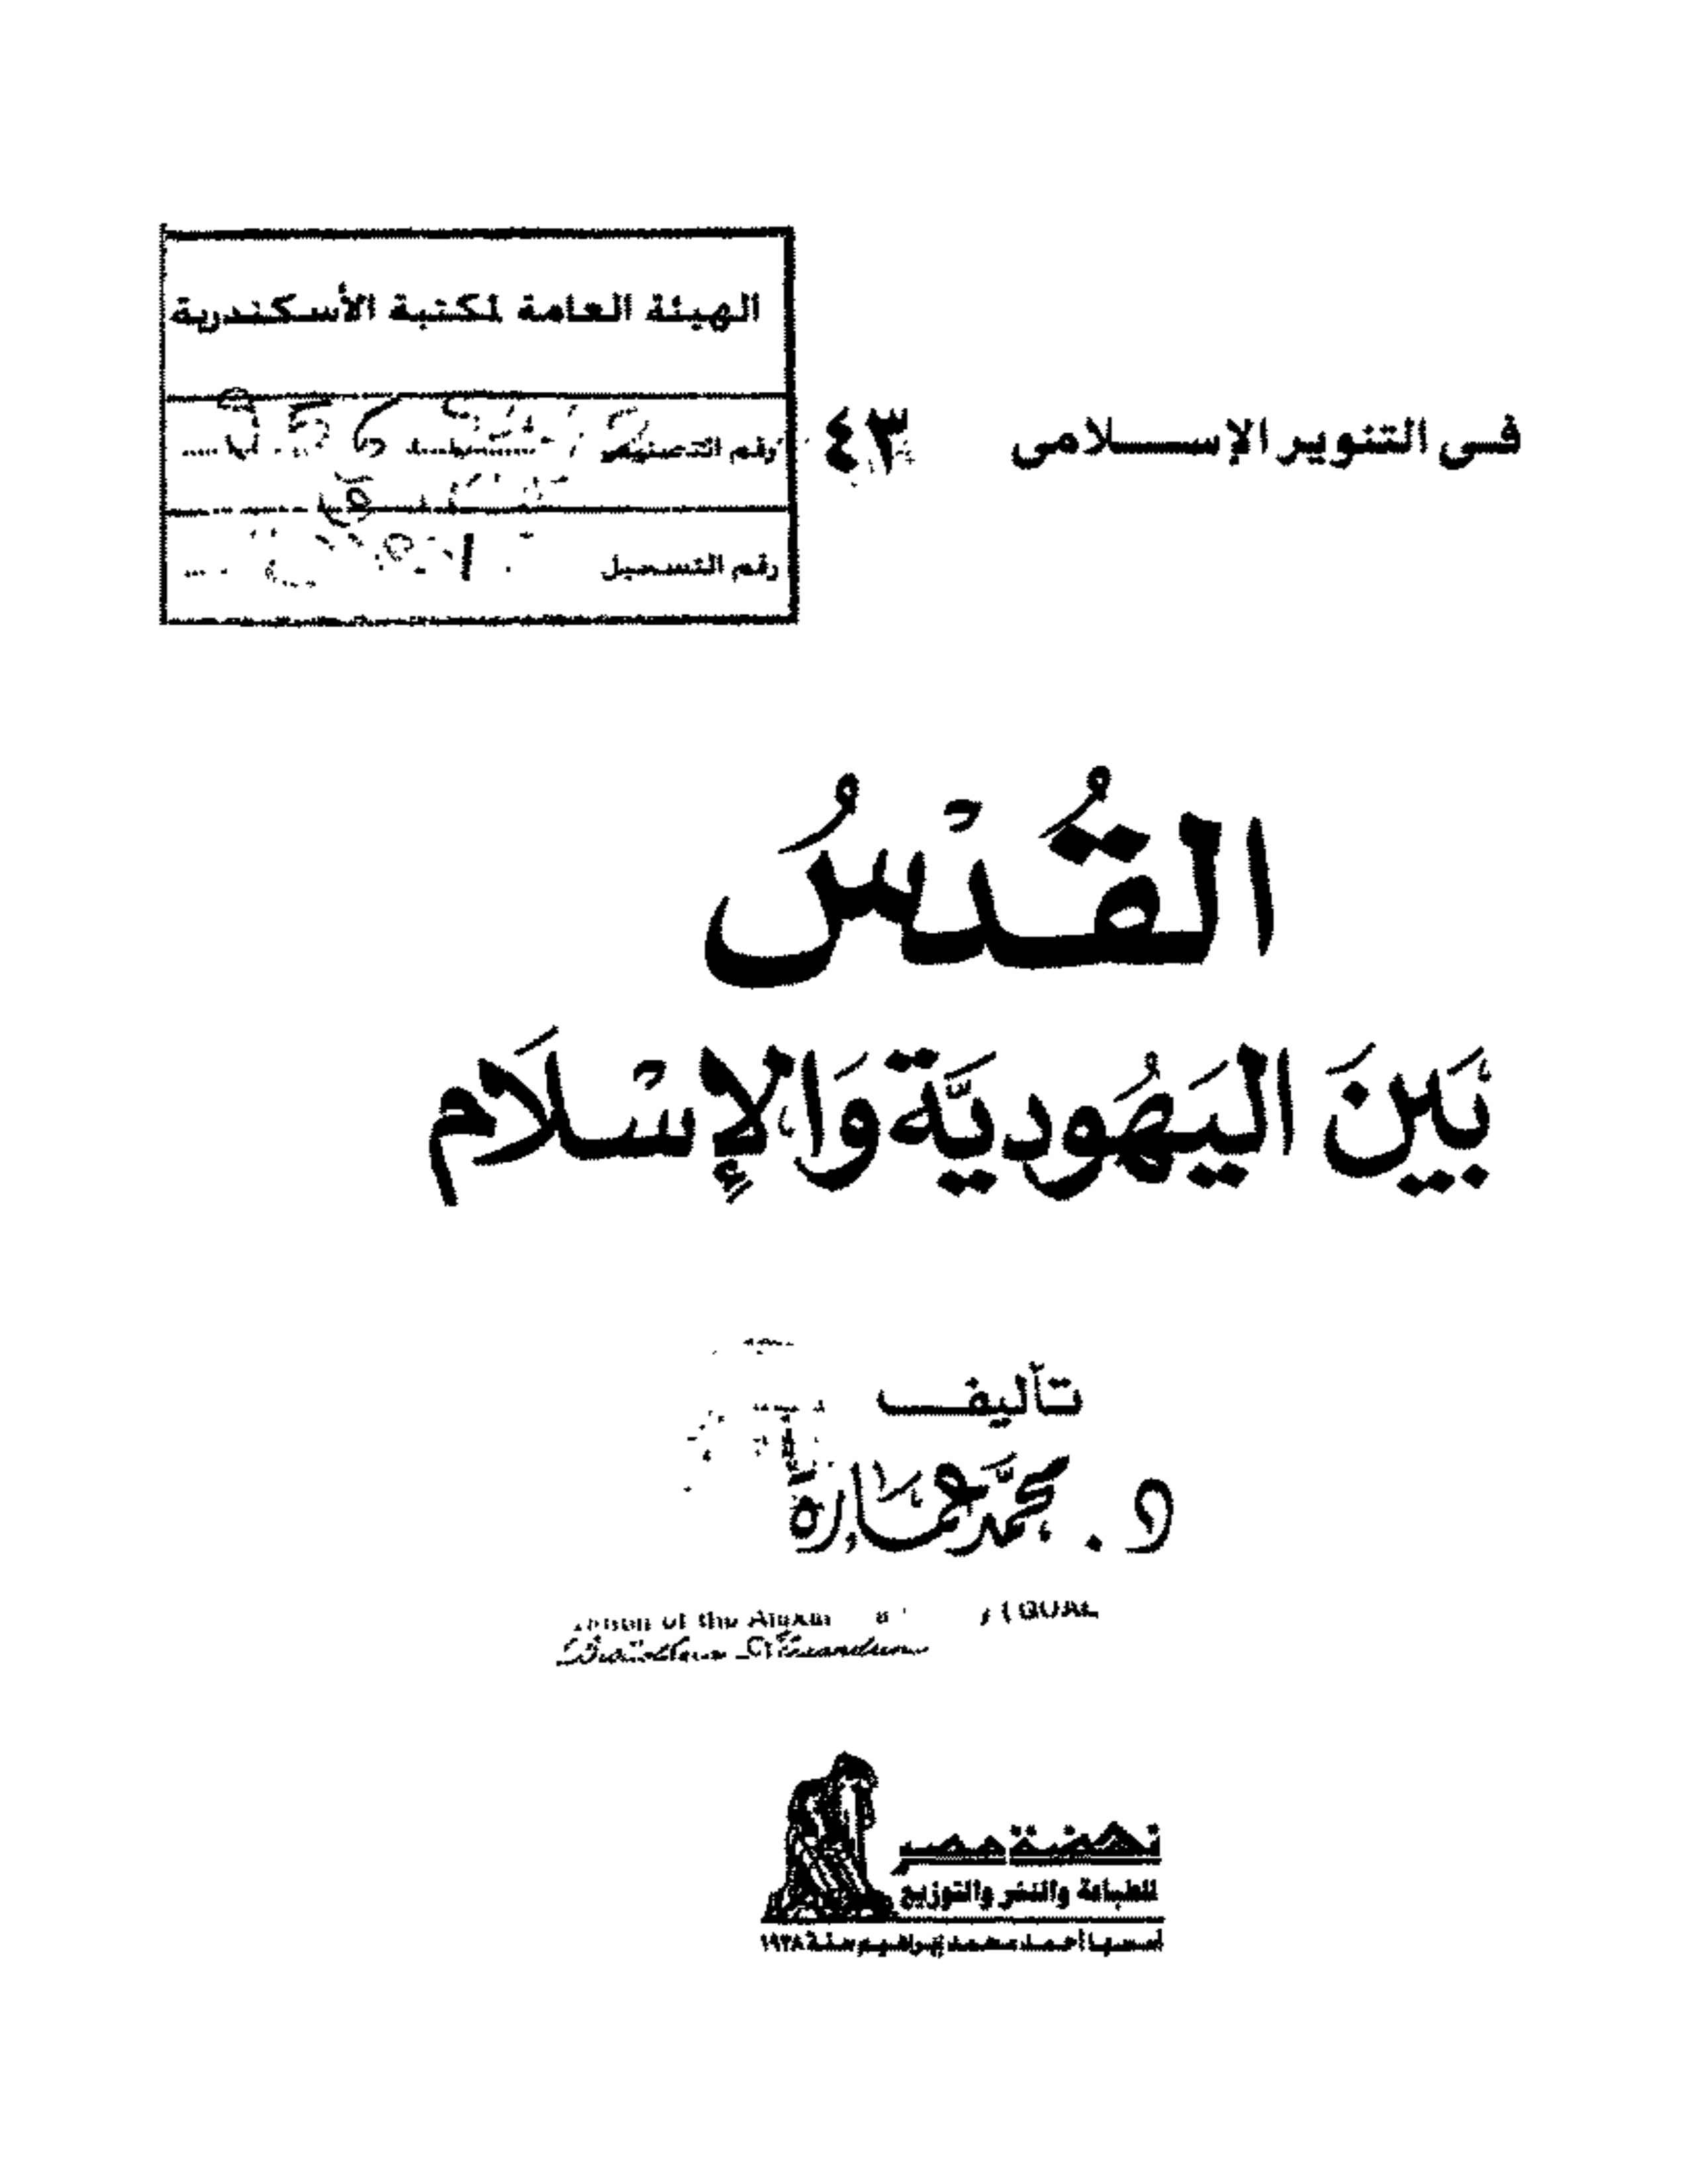 الهيئة العامة لمكتبة الأسكندرية
رقم التصنيف
رقم التسجيل
فى التنوير الإسلامى ٤٣
القُدْسُ
بَينَ اليَهُوديَّة وَالإسْلَام
تأليف
د. محمَّد عمَارة
of the Alexan
نهضة مصر
للطباعة والنشر والتوزيع
أسسها أحمد محمد إبراهيم سنة ١٩٣٨